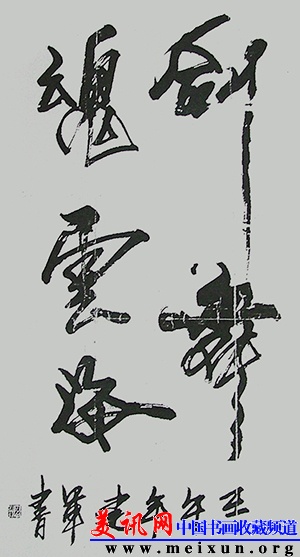 剑舞
魂雲海
壬午年建军书
美讯网 中国书画收藏频道
www.meixun.org